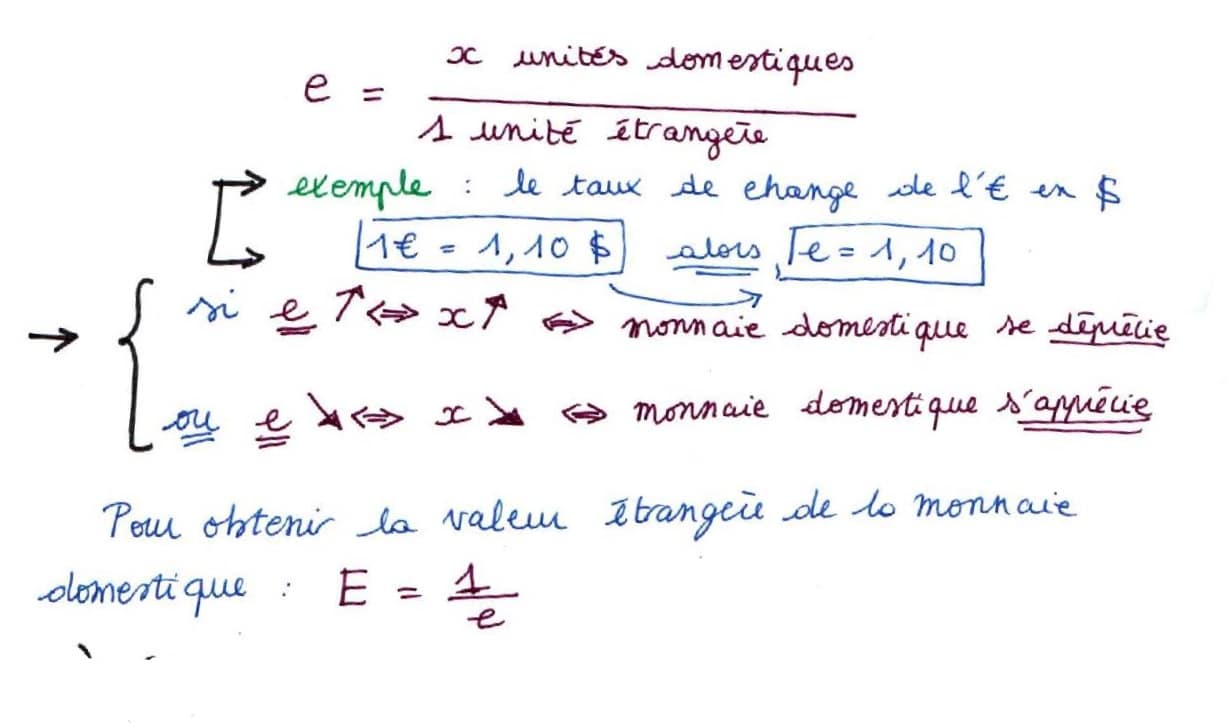 e = x unités domestiques / 1 unité étrangère
exemple : le taux de change de l'€ en $
1€ = 1,10 $ alors e = 1,10
→ { si e ↗ ⇔ x ↗ ⇔ monnaie domestique se déprécie
ou e ↘ ⇔ x ↘ ⇔ monnaie domestique s'apprécie
Pour obtenir la valeur étrangère de la monnaie
domestique : E = 1/e